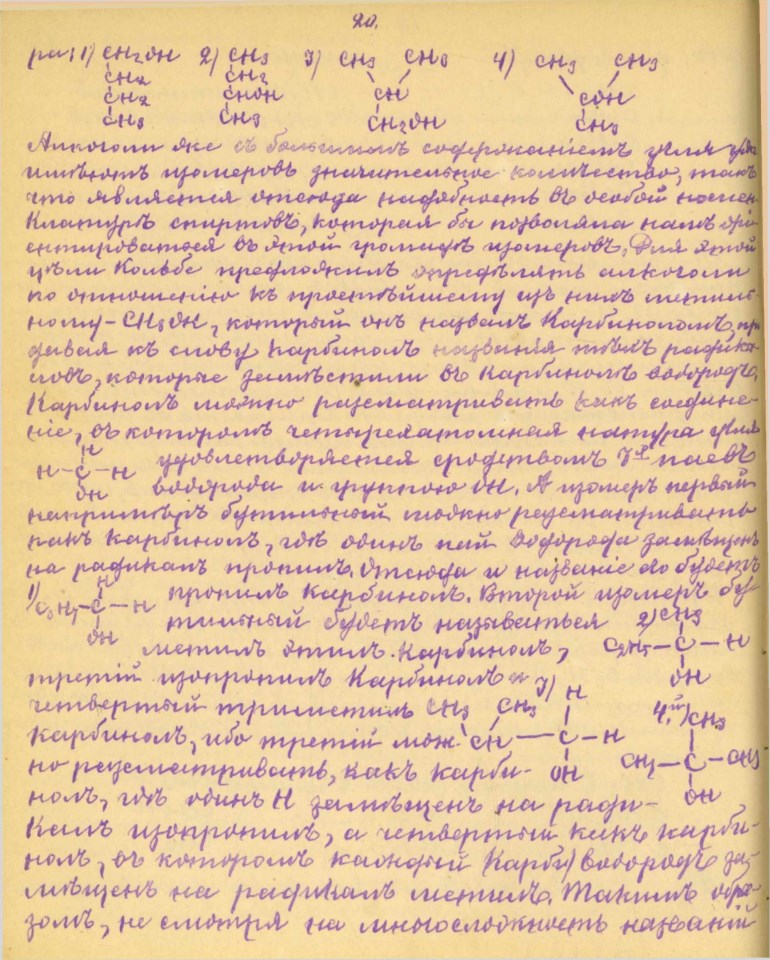 20.
ра: 1) CH2OH 2) CH3 3) CH3 CH3 4) CH3 CH3
CH2 CH2 CH COH
CH2 CHOH CH2OH CH3
CH3 CH3
Алкоголи же съ большимъ содержаніемъ угля
имѣютъ изомеровъ значительное количество, такъ
что является отсюда надобность въ особой номен
клатурѣ спиртовъ, которая бы позволяла намъ орі
ентироваться въ этой громадѣ изомеровъ. Для этой
цѣли Кольбе предложилъ опредѣлять алкоголи
по отношенію къ простѣйшему изъ нихъ метиль-
ному - CH3OH, который онъ назвалъ Карбиноломъ, при
давая къ слову карбинолъ названія тѣхъ радика-
ловъ, которые замѣстили въ карбинолѣ водородъ.
Карбинолъ можно разсматривать какъ соедине-
ніе, въ которомъ четырехатомная натура угля
H
H-C-H удовлетворяется сродствомъ 3х паевъ
OH водорода и группою OH. А изомеръ первый
напримѣръ бутильный можно разсматривать
какъ карбинолъ, гдѣ одинъ пай водорода замѣщенъ
на радикалъ пропилъ. Отсюда и названіе его будетъ
1) H
C3H7-C-H пропилъ карбинолъ. Второй изомеръ бу
OH тильный будетъ называться 2) CH3
метилъ этилъ карбинолъ, C2H5-C-H
OH
третій изопропилъ карбинолъ и 3) H
четвертый триметилъ CH3 CH3 4й) CH3
карбинолъ, ибо третій мож- CH-C-H CH3-C-CH3
но разсматривать, какъ карби- OH OH
нолъ, гдѣ одинъ H замѣщенъ на ради-
калъ изопропилъ, а четвертый какъ карби-
нолъ, въ которомъ каждый (карби) водородъ за-
мѣщенъ на радикалъ метилъ. Такимъ обра-
зомъ, не смотря на многосложность названій